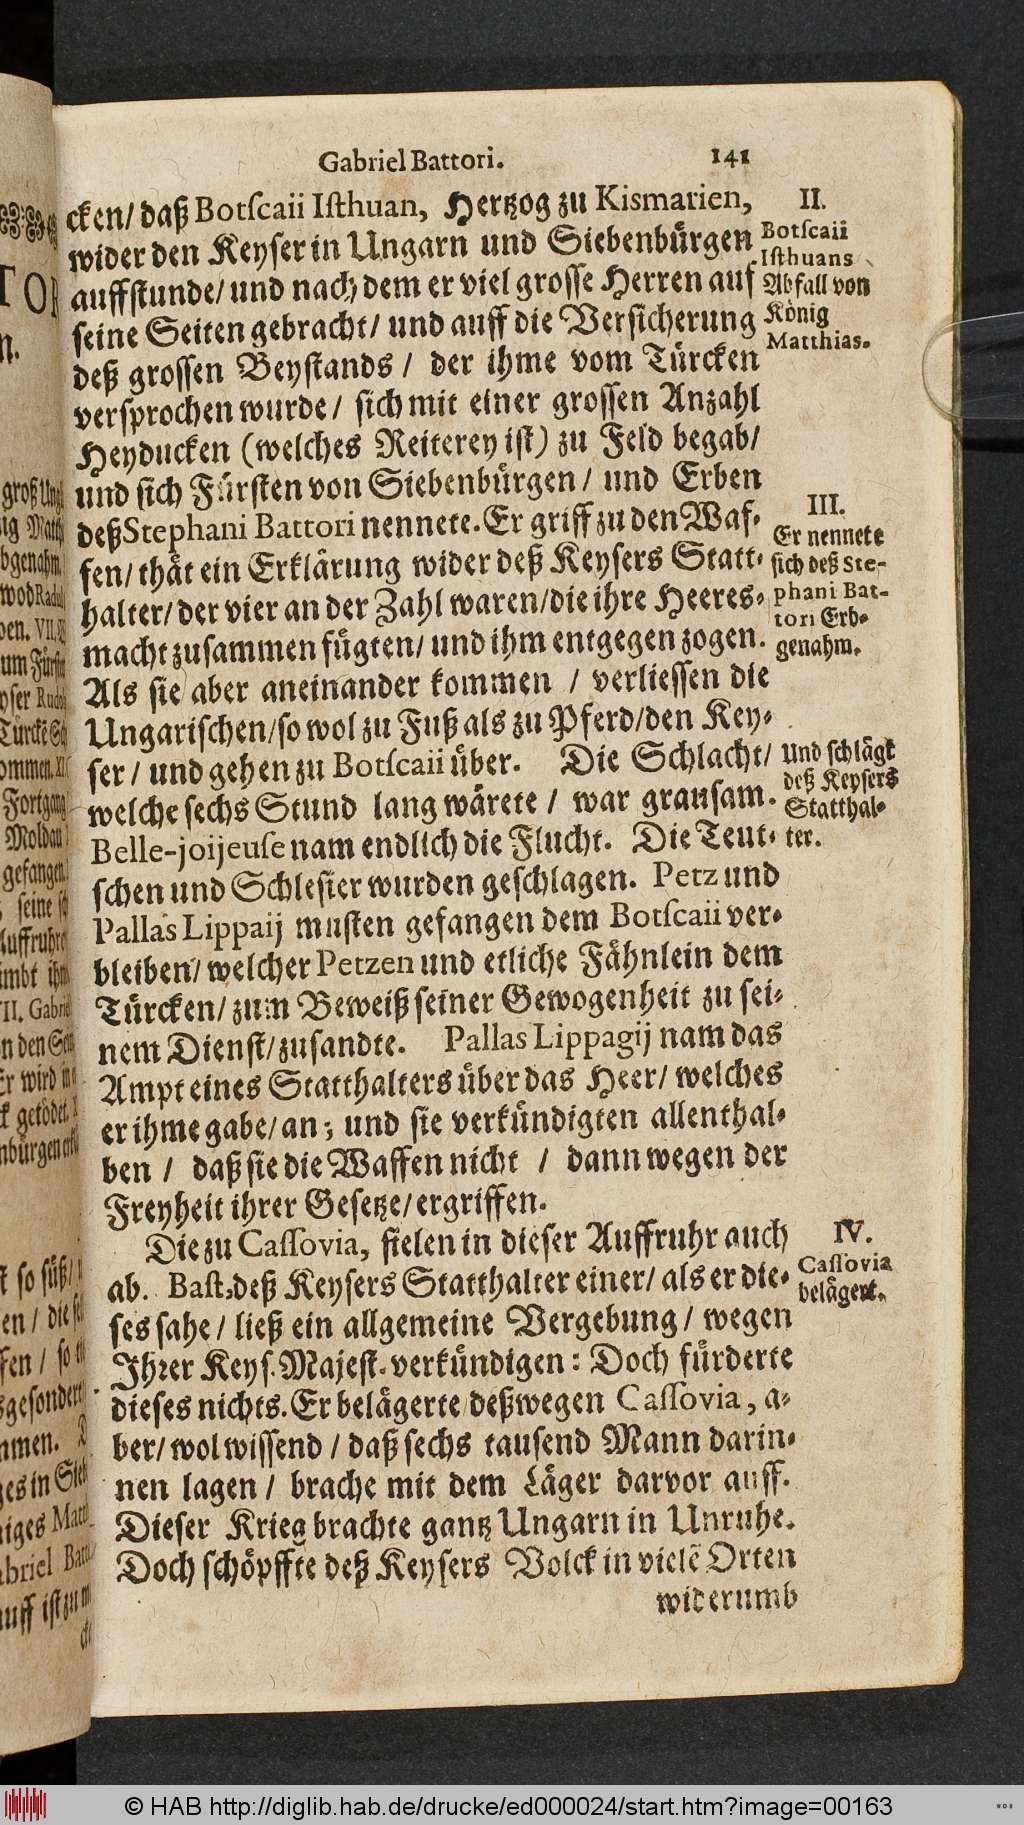 Gabriel Battori. 141
cken/ daß Botſcaii Iſthuan, Hertzog zu Kismarien,
wider den Keyſer in Ungarn und Siebenbürgen
auffſtunde/ und nach dem er viel groſſe Herren auf
ſeine Seiten gebracht/ und auff die Verſicherung
deß groſſen Beyſtands / der ihme vom Türcken
verſprochen wurde / ſich mit einer groſſen Anzahl
Heyducken (welches Reiterey iſt) zu Feld begab/
und ſich Fürſten von Siebenbürgen / und Erben
deß Stephani Battori nennete. Er griff zu den Waf-
fen/ thät ein Erklärung wider deß Keyſers Statt-
halter/ der vier an der Zahl waren/ die ihre Heeres-
macht zuſammen fügten/ und ihm entgegen zogen.
Als ſie aber aneinander kommen / verlieſſen die
Ungariſchen/ ſo wol zu Fuß als zu Pferd/ den Key-
ſer / und gehen zu Botſcaii über. Die Schlacht/
welche ſechs Stund lang wärete / war grauſam.
Belle-joijeuſe nam endlich die Flucht. Die Teut-
ſchen und Schleſier wurden geſchlagen. Petz und
Pallas Lippaij muſten gefangen dem Botſcaii ver-
bleiben/ welcher Petzen und etliche Fähnlein dem
Türcken/ zum Beweiß ſeiner Gewogenheit zu ſei-
nem Dienſt/ zuſandte. Pallas Lippagij nam das
Ampt eines Statthalters über das Heer/ welches
er ihme gabe/ an; und ſie verkündigten allenthal-
ben / daß ſie die Waffen nicht / dann wegen der
Freyheit ihrer Geſetze/ ergriffen.
Die zu Caſſovia, fielen in dieſer Auffruhr auch
ab. Baſt, deß Keyſers Statthalter einer/ als er die-
ſes ſahe / ließ ein allgemeine Vergebung / wegen
Ihrer Keyſ. Majeſt. verkündigen: Doch fürderte
dieſes nichts. Er belägerte deßwegen Caſſovia, a-
ber/ wol wiſſend / daß ſechs tauſend Mann darin-
nen lagen / brache mit dem Läger darvor auff.
Dieſer Krieg brachte gantz Ungarn in Unruhe.
Doch ſchöpffte deß Keyſers Volck in vielẽ Orten
widerumb
II.
Botſcaii
Iſthuans
Abfall von
König
Matthias.
III.
Er nennete
ſich deß Ste-
phani Bat-
tori Erb-
genahm.
Und ſchlägt
deß Keyſers
Statthal-
ter.
IV.
Caſſovia
belägert.
© HAB http://diglib.hab.de/drucke/ed000024/start.htm?image=00163